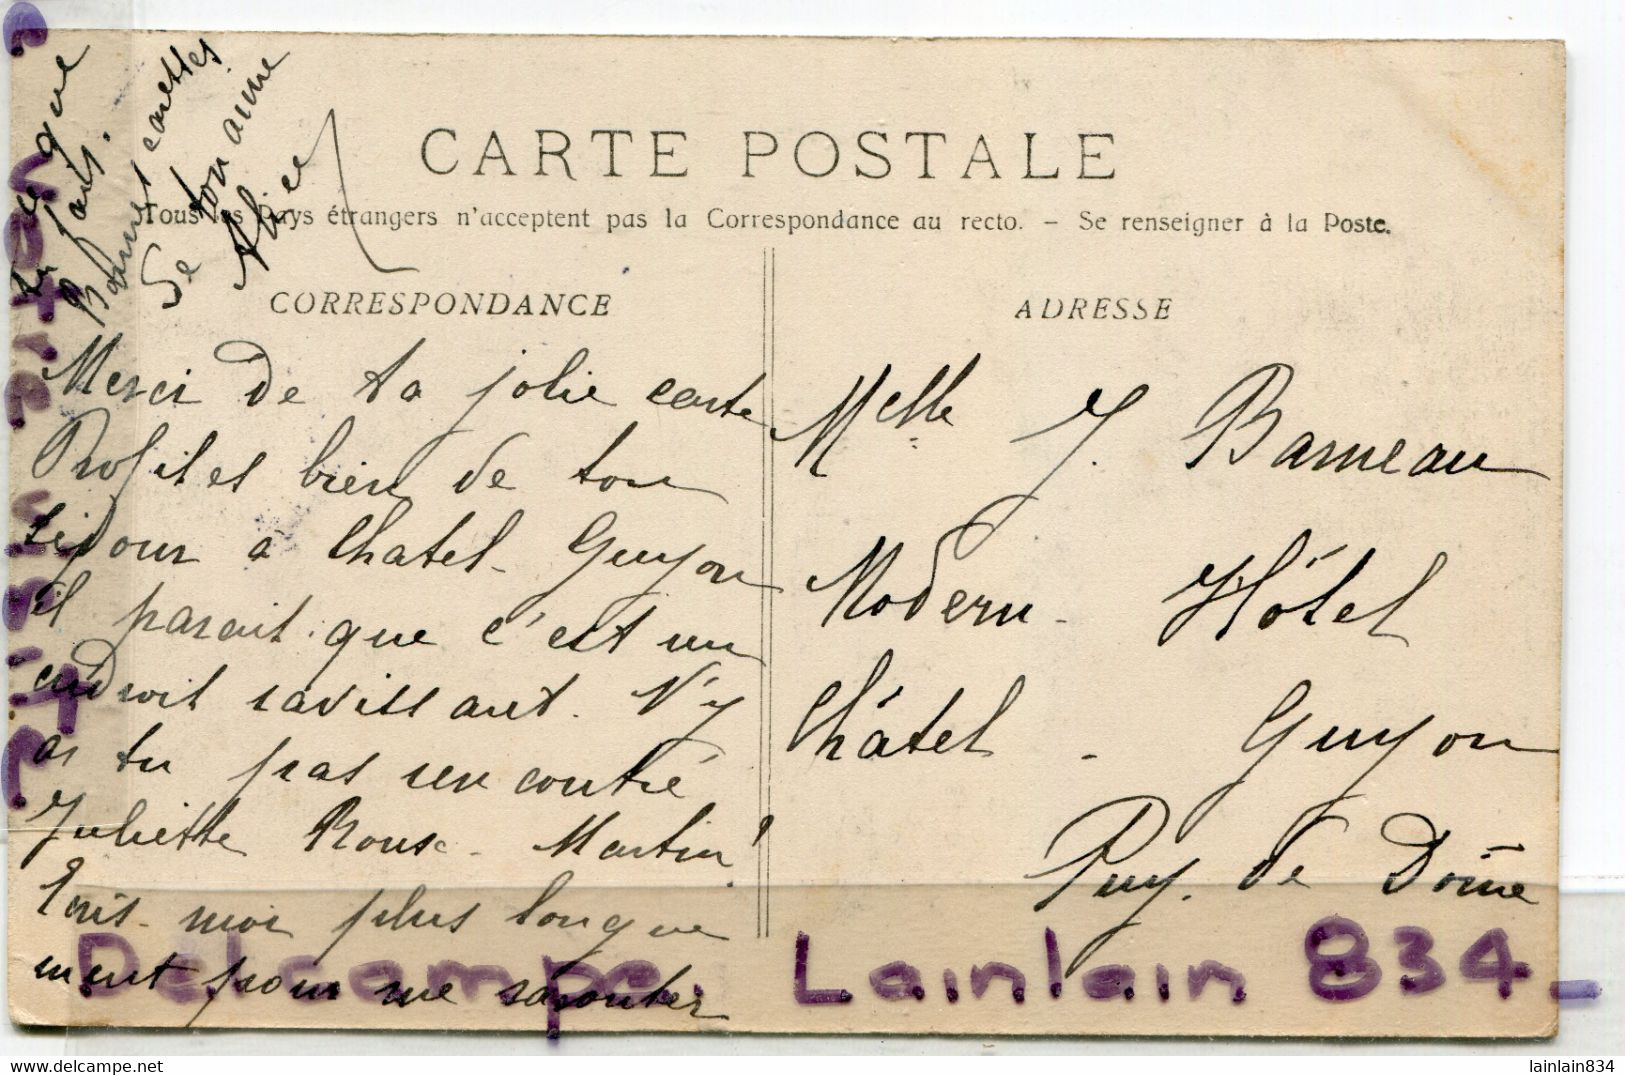 CARTE POSTALE
Tous les Pays étrangers n'acceptent pas la Correspondance au recto. – Se renseigner à la Poste.
CORRESPONDANCE
Merci de ta jolie carte
Profites bien de ton
séjour à Châtel-Guyon
il parait que c'est un
endroit ravissant. N'y
as tu pas rencontré
Juliette Rouse-Martin?
Ecris-moi plus longue
ment pour me raconter
ce que
tu fais.
Bonnes caresses
De ton amie
Alice
ADRESSE
Melle J. Barneau
Modern-Hôtel
Châtel-Guyon
Puy. de Dôme
Delcampe Lainlain 834-
lainlain834